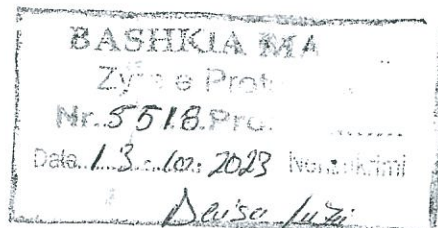 BASHKIA MA
Zyra e Prot
Nr. 5518. Prot.
Data 13. 10. 2023 Nënshkrimi